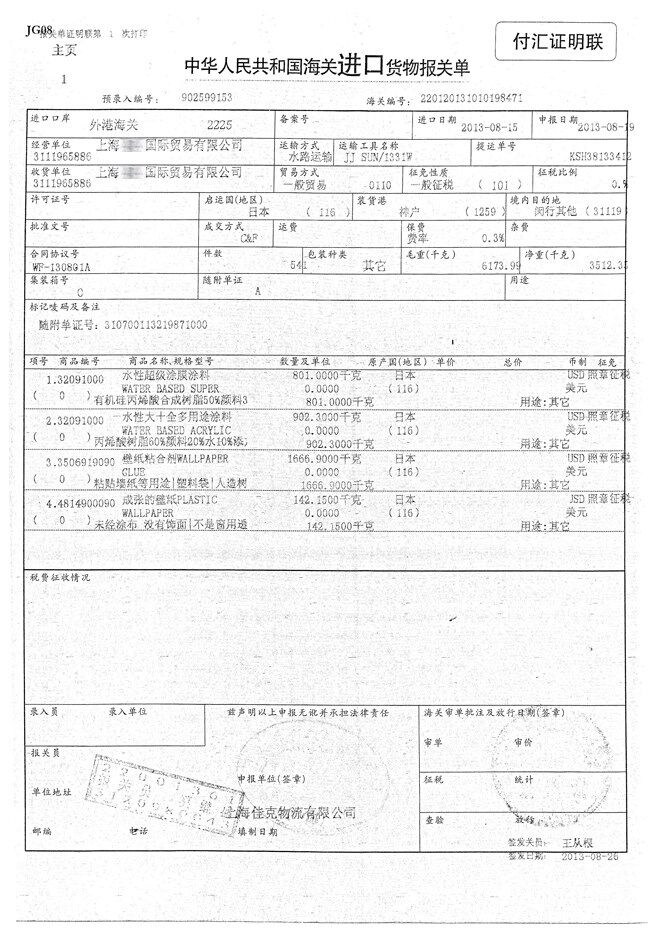 JG08
报关单证明联第 1 次打印
主页
1
付汇证明联
中华人民共和国海关进口货物报关单
预录入编号: 902599153 海关编号: 220120131010198471
进口口岸 备案号 进口日期 申报日期
外港海关 2225 2013-08-15 2013-08-19
经营单位 上海 国际贸易有限公司 运输方式 运输工具名称 提运单号
3111965886 水路运输 JJ SUN/1331W KSH38133412
收货单位 上海 国际贸易有限公司 贸易方式 征免性质 征税比例
3111965886 一般贸易 0110 一般征税 (101) 0.%
许可证号 启运国(地区) 装货港 境内目的地
日本 (116) 神户 (1259) 闵行其他 (31119)
批准文号 成交方式 运费 保费 杂费
C&F 费率 0.3%
合同协议号 件数 包装种类 毛重(千克) 净重(千克)
WF-I308G1A 541 其它 6173.99 3512.35
集装箱号 随附单证 用途
0 A
标记唛码及备注
随附单证号: 310700113219871000
项号 商品编号 商品名称,规格型号 数量及单位 原产国(地区) 单价 总价 币制 征免
1.32091000 水性超级涂膜涂料 801.0000千克 日本 USD 照章征税
( 0 ) WATER BASED SUPER 0.0000 (116) 美元
有机硅丙烯酸合成树脂50%颜料3 801.0000千克 用途:其它
2.32091000 水性大十全多用途涂料 902.3000千克 日本 USD 照章征税
( 0 ) WATER BASED ACRYLIC 0.0000 (116) 美元
丙烯酸树脂60%颜料20%水10%添 902.3000千克 用途:其它
3.3506919090 壁纸粘合剂WALLPAPER 1666.9000千克 日本 USD 照章征税
( 0 ) GLUE 0.0000 (116) 美元
粘贴墙纸等用途|塑料袋|人造树 1666.9000千克 用途:其它
4.4814900090 成张的壁纸PLASTIC 142.1500千克 日本 USD 照章征税
( 0 ) WALLPAPER 0.0000 (116) 美元
未经涂布 没有饰面|不是窗用透 142.1500千克 用途:其它
税费征收情况
录入员 录入单位 兹声明以上申报无讹并承担法律责任 海关审单批注及放行日期(签章)
审单 审价
报关员
申报单位(签章) 征税 统计
单位地址
上海佳克物流有限公司
查验 放行
邮编 电话 填制日期
签发关员: 王从根
签发日期: 2013-08-26